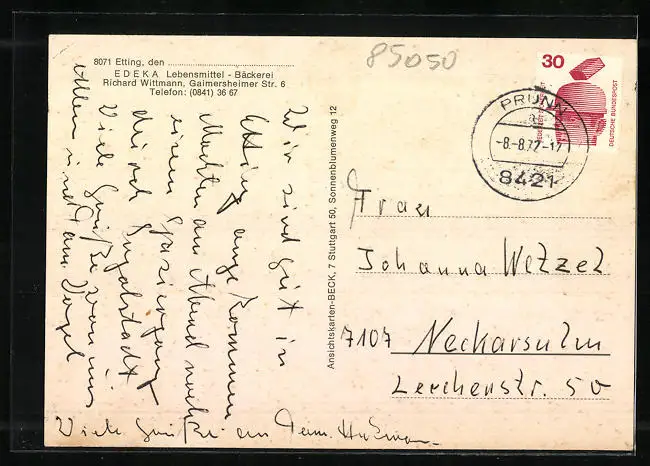 85050
8071 Etting, den
EDEKA Lebensmittel - Bäckerei
Richard Wittmann, Gaimersheimer Str. 6
Telefon: (0841) 36 67
Wir sind gut in
Etting angekommen
Machten am Abend noch
einen Spaziergang
durch Ingolstadt
Viele Grüße von uns
Allen
Viele Grüße an Fam.
Ansichtskarten-BECK, 7 Stuttgart 50, Sonnenblumenweg 12
30
DEUTSCHE BUNDESPOST
PRUNN
-8.-8.77-17
8421
Frau
Johanna Wetzel
7107 Neckarsulm
Lerchenstr. 50